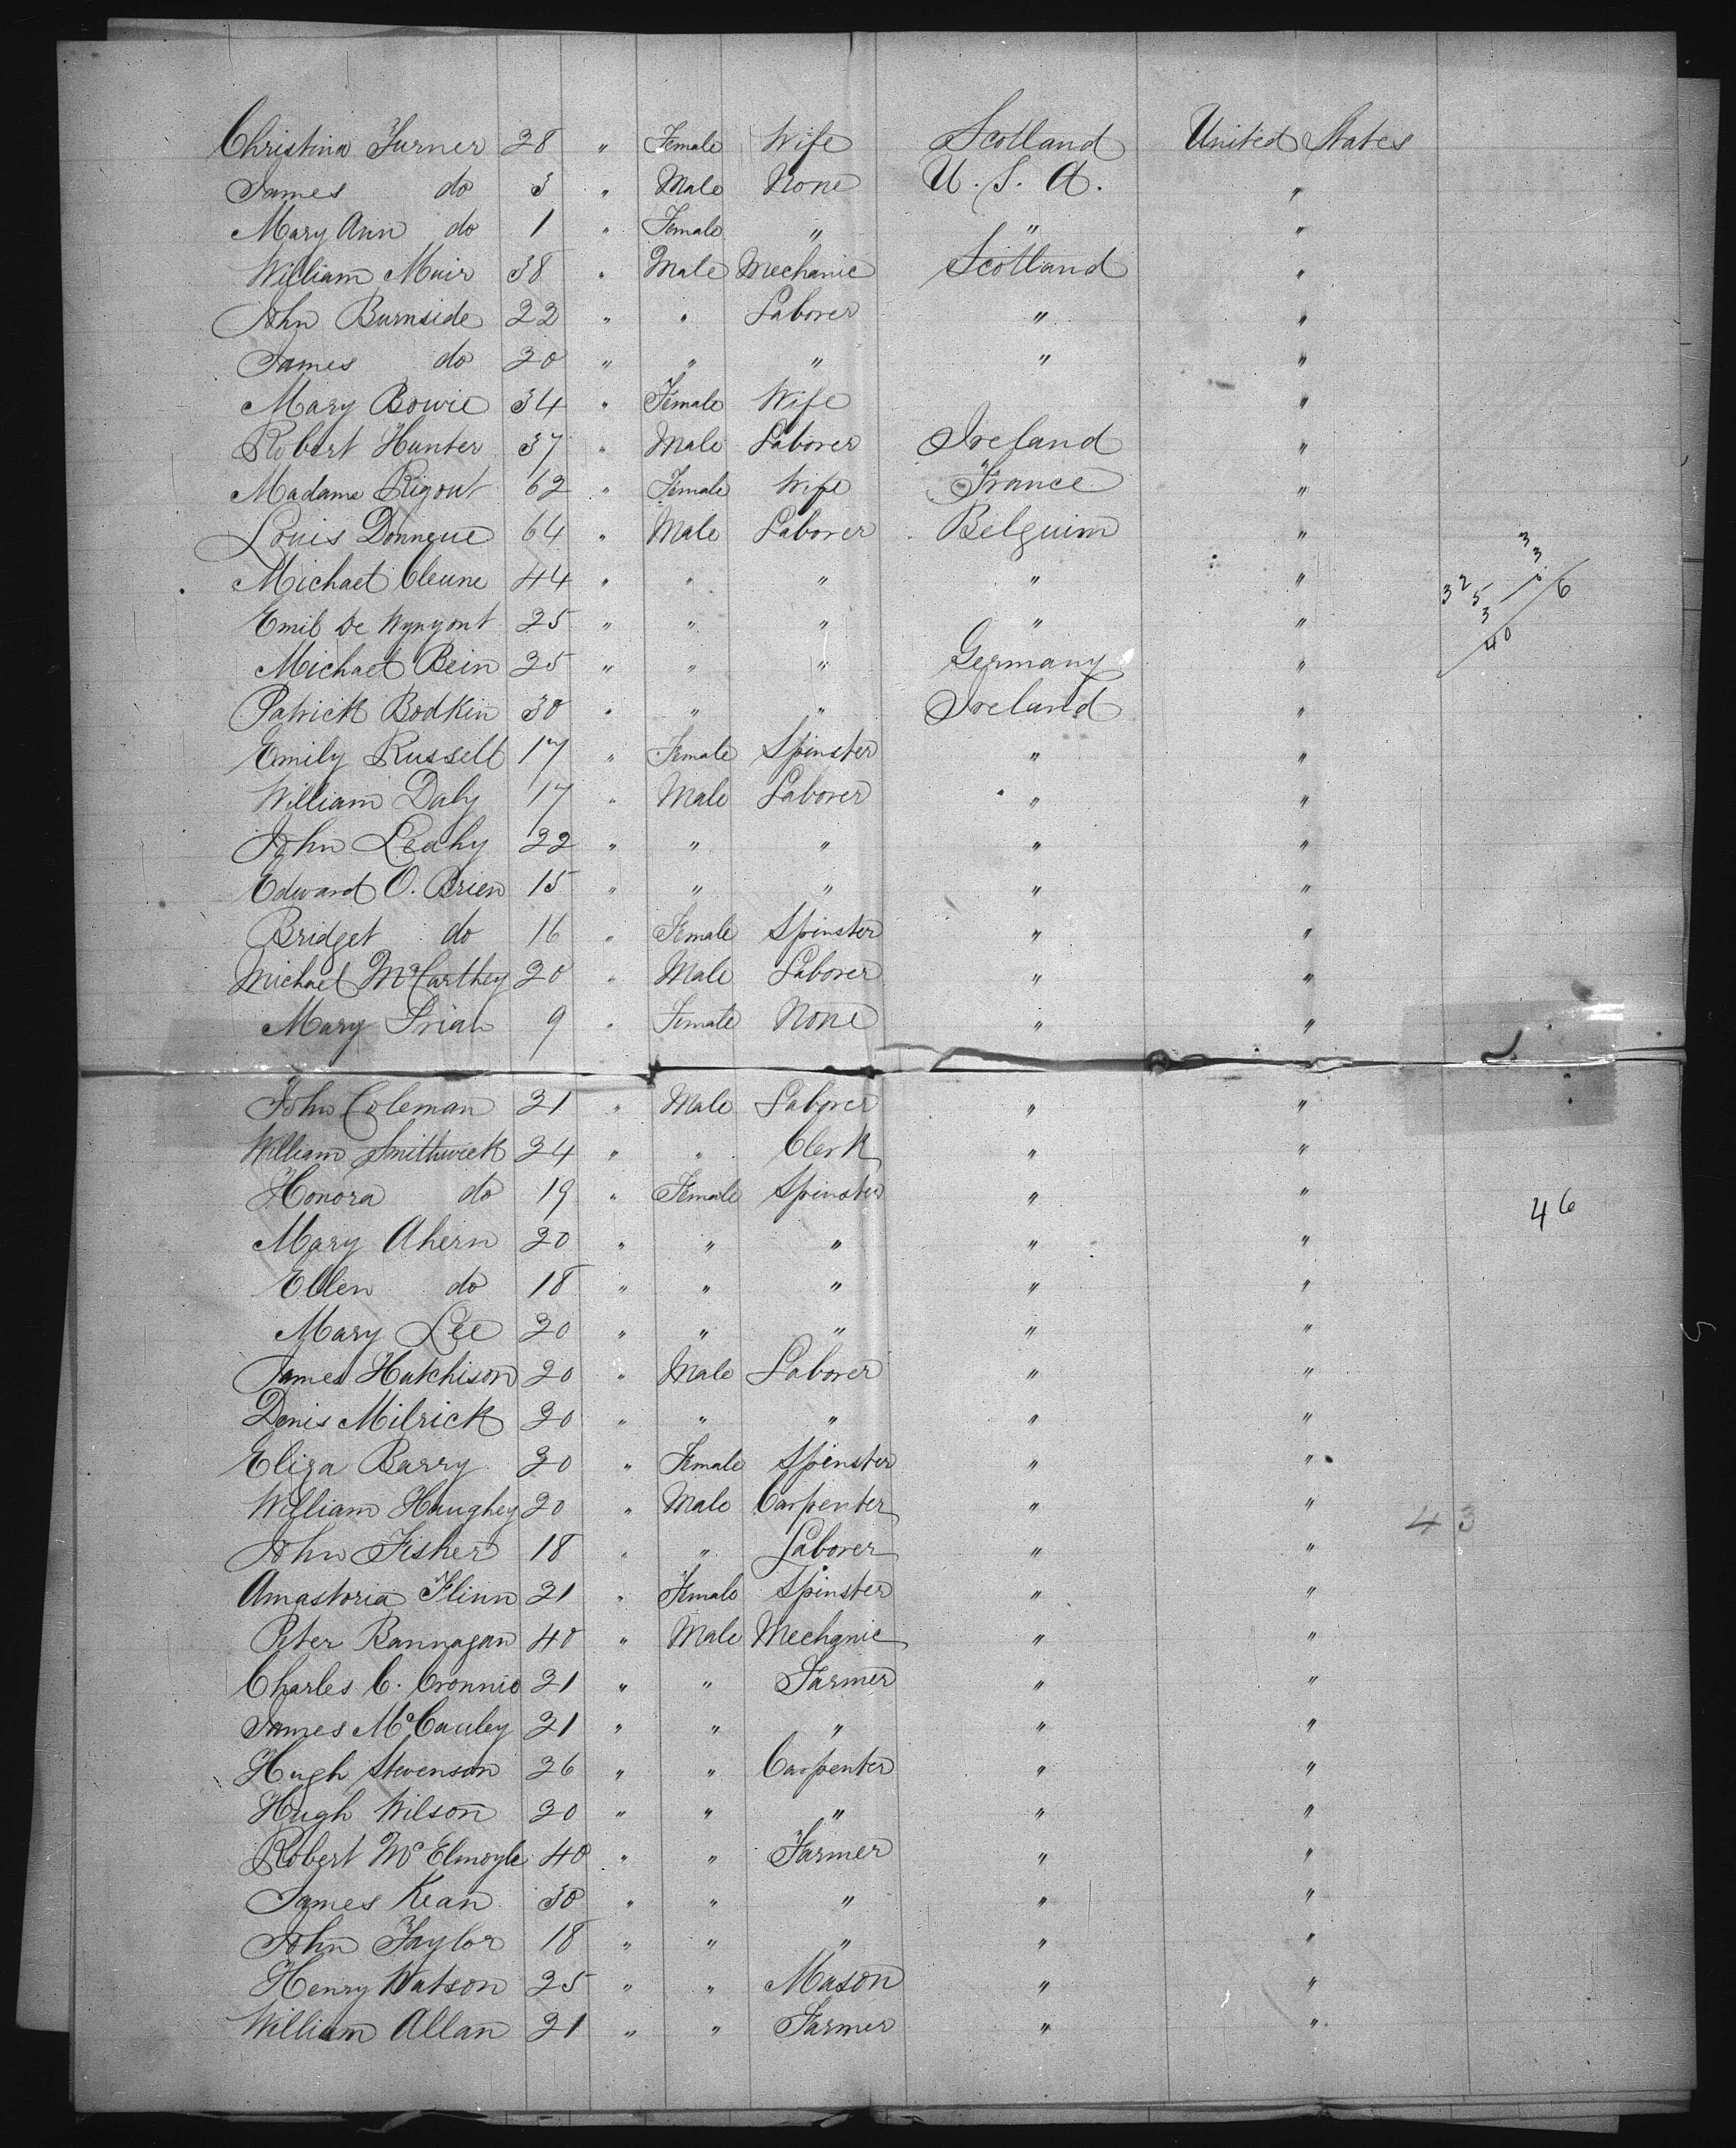 Christina Turner 28 " Female Wife Scotland United States
James do 3 " Male None U. S. A. "
Mary Ann do 1 " Female " " "
William Muir 38 " Male Mechanic Scotland "
John Burnside 22 " " Laborer " "
James do 20 " " " " "
Mary Bowie 34 " Female Wife "
Robert Hunter 37 " Male Laborer Ireland "
Madame Rigout 62 " Female Wife France "
Louis Donneue 64 " Male Laborer Belguim "
Michael Cleune 44 " " " " "
Emil De Wynyont 25 " " " " "
Michael Bein 25 " " " Germany "
Patrick Bodkin 30 " " " Ireland "
Emily Russell 17 " Female Spinster " "
William Daly 17 " Male Laborer " "
John Leahy 22 " " " " "
Edward O. Brien 15 " " " " "
Bridget do 16 " Female Spinster " "
Michael McCarthey 20 " Male Laborer " "
Mary 9 " Female None " "
John Coleman 21 " Male Laborer " "
William Smithwick 24 " " Clerk " "
Honora do 19 " Female Spinster " "
46
Mary Ahern 20 " " " " "
Ellen do 18 " " " " "
Mary Lee 20 " " " " "
James Hutchison 20 " Male Laborer " "
Denis Milrick 20 " " " " "
Eliza Barry 20 " Female Spinster " "
William Haughey 20 " Male Carpenter " "
43
John Fisher 18 " " Laborer " "
Amastoria Flinn 21 " Female Spinster " "
Peter Bannagan 40 " Male Mechanic " "
Charles C. Cronnie 21 " " Farmer " "
James McCauley 21 " " " " "
Hugh Stevenson 26 " " Carpenter " "
Hugh Wilson 20 " " " " "
Robert McElmoyle 40 " " Farmer " "
James Kean 30 " " " " "
John Taylor 18 " " " " "
Henry Watson 25 " " Mason " "
William Allan 21 " " Farmer " "